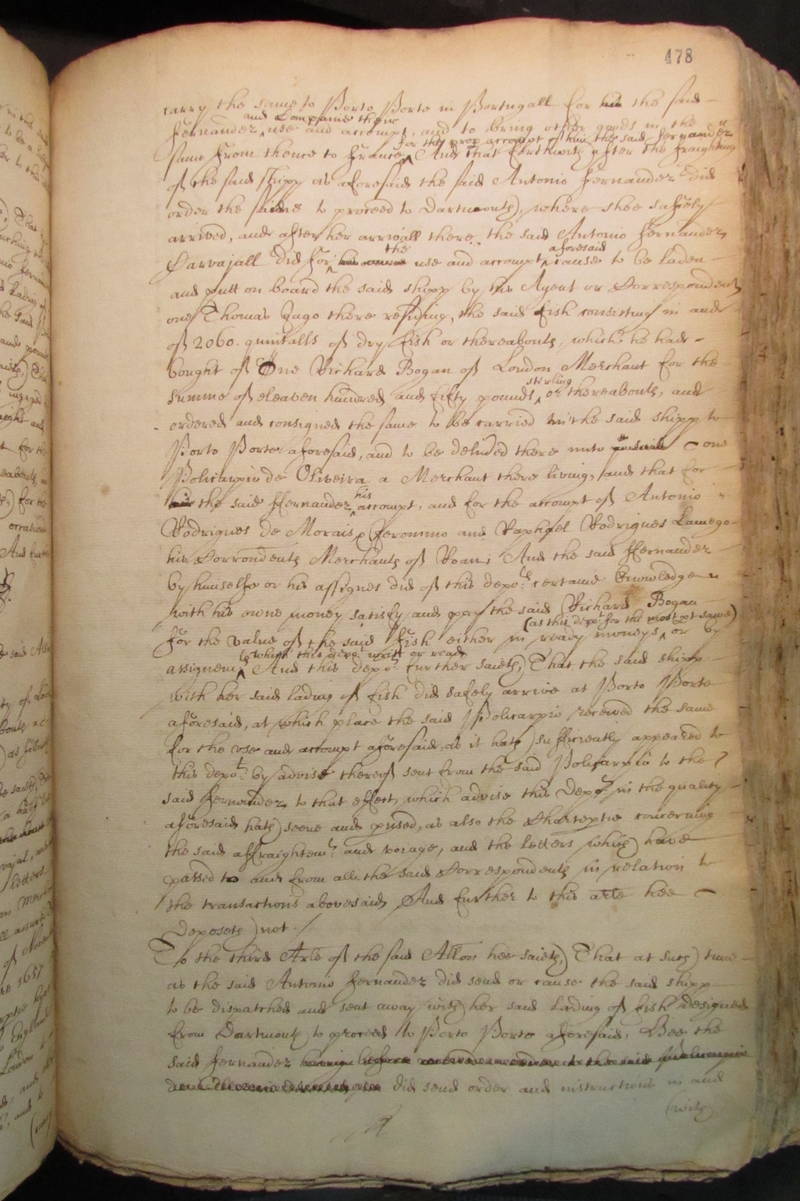 478
carry the same to Porto Porto in Portugall for the said
and Companie there
Fernandez use and accompt, and to bring other goods in the
for the proper accompt of him the said Fernandez
same from thence to France, And that forthwith after the fraighting
of the said shipp as aforesaid the said Antonio Fernandez did
order the same to proceed to Dartmouth, where shee safely
arrived, and after her arrivall there the said Antonio Fernandez
the aforesaid
Carvajall did for use and accompt cause to be laden
and putt on board the said shipp by his Agent or Correspondent
one Thomas Zugo there residing, the said fish consisting in and
of 2060 quintalls of dry fish or thereabouts, which he had
bought of One Richard Bogan of London Merchant for the
stirling
summe of eleaven hundred and fifty pounds or thereabouts, and
ordered and consigned the same to be carried in the said shipp to
Porto Porto aforesaid, and to be delivered there unto one
Policarpio de Oliveira a Merchant there living, and that for
his
the said Fernandez accompt, and for the accompt of Antonio
Rodrigues De Morais, Jeronimo and Raphael Rodrigues Lamego
his Corrondents Merchants of Roan, And the said Fernandez
by himselfe or his assignes did of this depots certaine knowledge
with his owne money satisfy and pay the said Richard Bogan
(as this depot for the most pt sawe)
for the value of the said fish either in ready moneys or by
assignemt, And this depot further saieth, That the said shipp
with her said lading of fish did safely arrive at Porto Porto
aforesaid, at which place the said Policarpio received the same
for the use and accompt aforesaid, as it hath sufficiently appeared to
this depot by advise thereof sent from the said Policarpio to the
said Fernandez to that effect, which advise this Depot in the quality
aforesaid hath seene and perused, as also the Charterptie concerning
the said affraightemt and voiage, and the letters which have
passed to and from all the said Correspondents in relation to
the transactions abovesaid, And further to this arle hee
deposeth not /
To the third Arle of the said Allon hee saieth, That at such time
as the said Antonio Fernandez did send or cause the said shipp
to be dispatched and sent away with her said lading of fish designed
from Dartmouth to proceed to Porto Porto aforesaid, Hee the
said Fernandez
did send order and instructions in and
(with